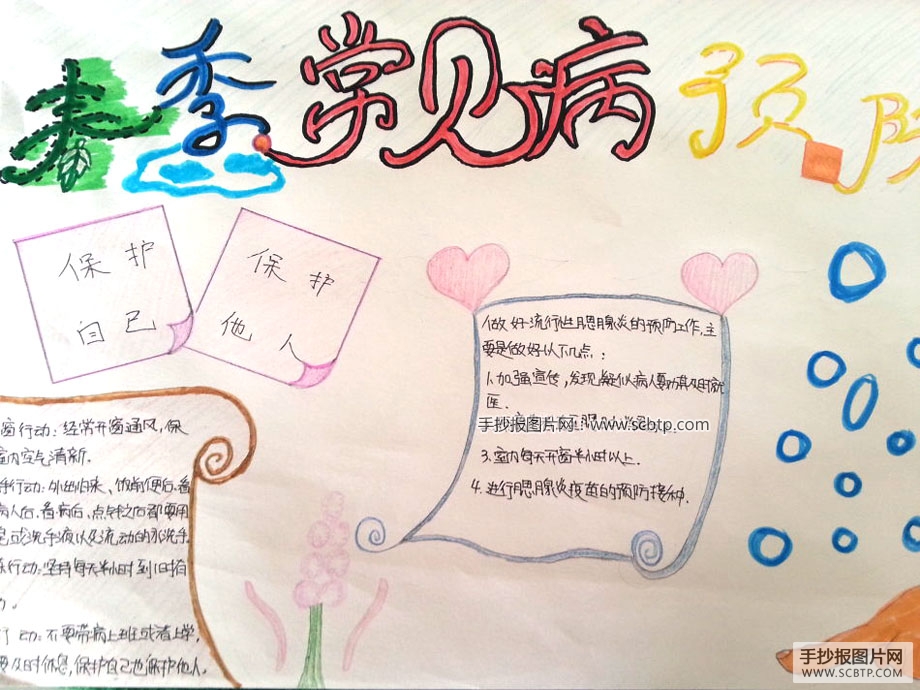 春季常见病预防
保护
自己
保护
他人
做好流行性腮腺炎的预防工作,主
要是做好以下几点:
1.加强宣传,发现疑似病人要劝其及时就
医.
手抄报图片网:www.scbtp.com
3.室内每天开窗半小时以上.
4.进行腮腺炎疫苗的预防接种.
窗行动:经常开窗通风,保
室内空气清新.
手行动:外出归来、饭前便后、看
病人后、看病后、点钞之后都要用
皂或洗手液以及流动的水洗手
行动:坚持每天半小时到1小时
行动:不要带病上班或者上学,
要及时休息,保护自己也保护他人.
手抄报图片网
WWW.SCBTP.COM